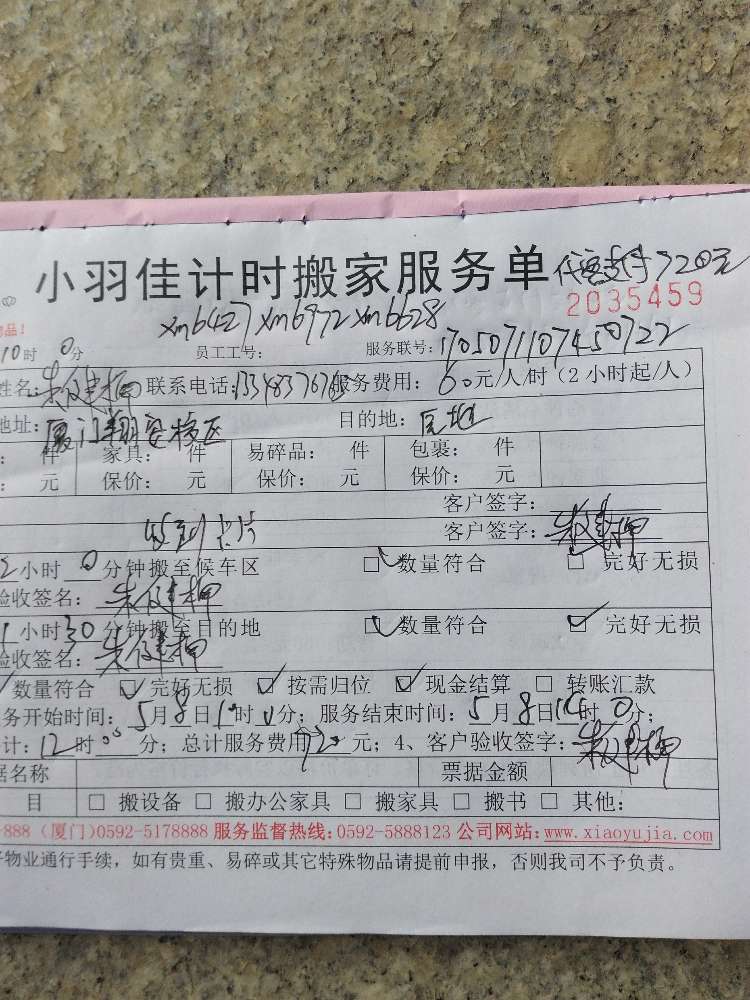 小羽佳计时搬家服务单 代客支付720元
2035459
xm6427 xm6972 xm6628
物品!
10时 0分 员工工号: 服务联号: 170507110745 0722
姓名: 联系电话: 服务费用: 60元/人/时（2小时起/人）
地址: 厦门翔安校区 目的地: 原地
: 件 家具: 件 易碎品: 件 包裹: 件
: 元 保价: 元 保价: 元 保价: 元
客户签字:
收到卡片 客户签字:
2小时 0分钟搬至候车区 数量符合 完好无损
验收签名:
1小时30分钟搬至目的地 数量符合 完好无损
验收签名:
数量符合 完好无损 按需归位 现金结算 转账汇款
务开始时间: 5月8日 时 0分; 服务结束时间: 5月8日 时 0分;
计: 12时00分; 总计服务费用720元; 4、客户验收签字:
据名称 票据金额
目 搬设备 搬办公家具 搬家具 搬书 其他:
-888 (厦门)0592-5178888 服务监督热线:0592-5888123 公司网站:www.xiaoyujia.com
物业通行手续，如有贵重、易碎或其它特殊物品请提前申报，否则我司不予负责。